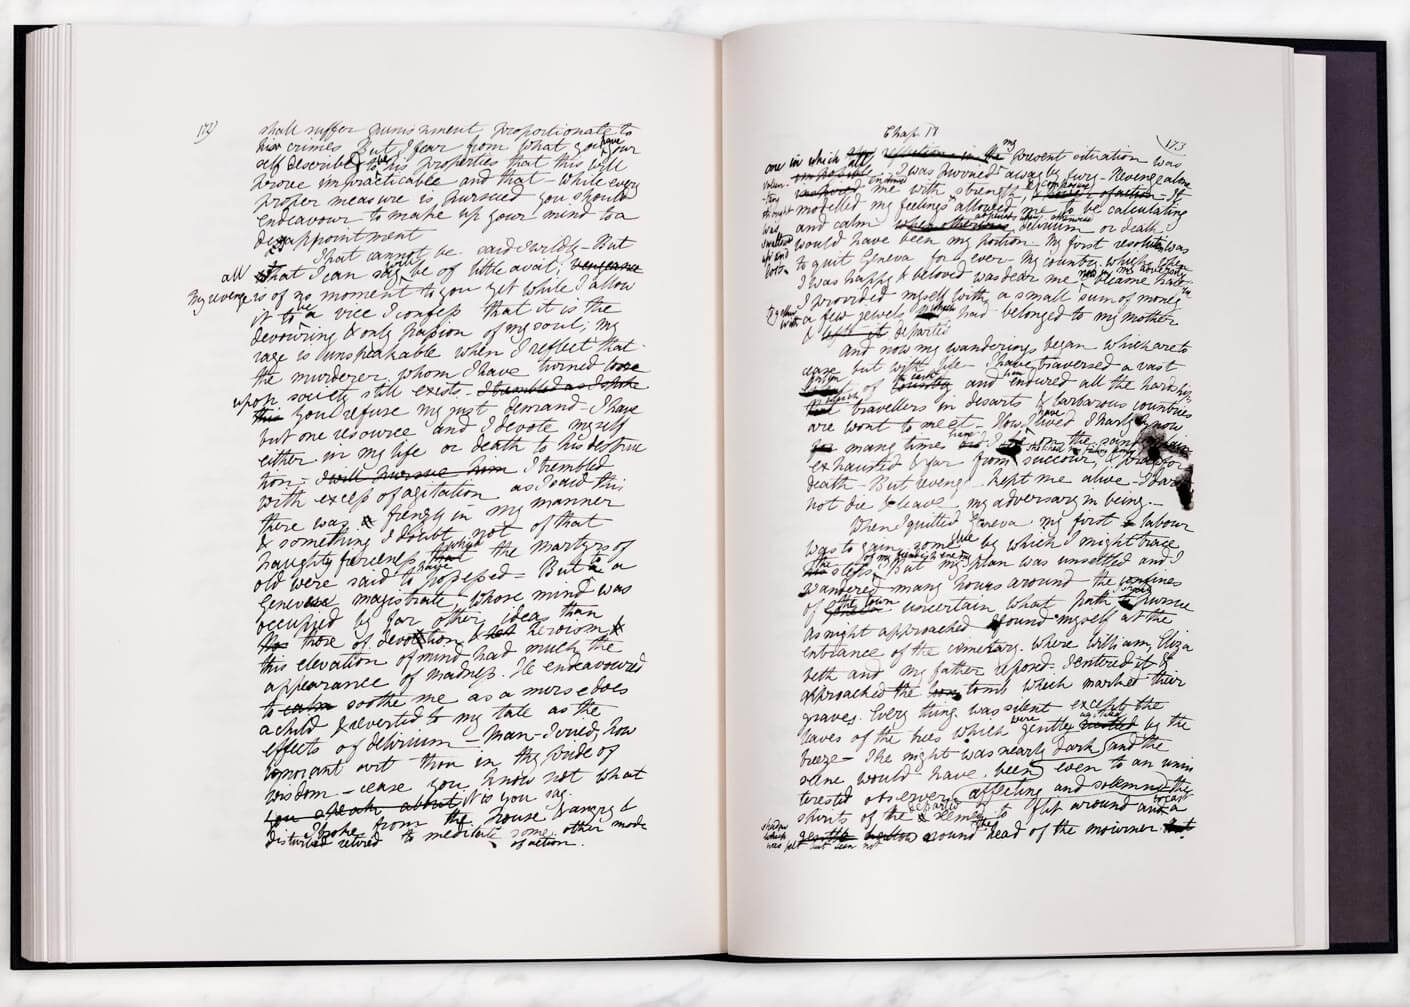 172)
shall suffer punishment proportionate to
his crimes But I fear from what you have your
self described to be his properties that this will
prove impracticable and that while every
proper measure is pursued you should
endeavour to make up your mind to a
disappointment
That cannot be said I wildly - But
all that I can say will be of little avail; vengeance
My revenge is of no moment to you yet while I allow
it to be a vice I confess that it is the
devouring & only passion of my soul; my
rage is unspeakable when I reflect that
the murderer whom I have turned loose
upon society still exists - I trembled as I spoke
this You refuse my just demand - I have
but one resource and I devote myself
either in my life or death to his destruc
tion - I will pursue him I trembled
with excess of agitation as I said this
there was frenzy in my manner
& something I doubt not of that
haughty fierceness that which the martyrs of
old were said to have possessed - But to a
Genevese magistrate whose mind was
occupied by far other ideas than
those of devotion & heroism
this elevation of mind had much the
appearance of madness. He endeavoured
to calm soothe me as a nurse does
a child & reverted to my tale as the
effects of delirium - Man - I cried, how
ignorant art thou in thy pride of
wisdom - cease you know not what
you speak about it is you say.
I broke from the house & angry &
disturbed retired to meditate some other mode
of action.
Chap. 17
173
one in which all reflection in the my present situation was
I was hurried away by fury - Revenge alone
me with strength & composure it
modelled my feelings & allowed me to be calculating
and calm when otherwise delirium or death
would have been my portion. My first resolution was
to quit Geneva for ever - My country which when
I was happy & beloved was dear me now in my adversity became hate
I provided myself with a small sum of money
together with a few jewels which had belonged to my mother
& left it departed
And now my wanderings began which are to
cease but with life - I have traversed a vast
portion of the earth country and have endured all the hardships
which travellers in desarts & barbarous countries
are wont to meet - How I have lived I hardly know
many times have I
exhausted & far from succour, & prayed for
death - But revenge kept me alive - I dared
not die & leave my adversary in being. -
When I quitted Geneva my first labour
was to gain some clue by which I might trace
the steps of my fiendish enemy But my plan was unsettled and I
wandered many hours around the confines
of the town Geneva uncertain what path to pursue
As night approached I found myself at the
entrance of the cemetary where William, Eliza
beth and my father reposed - I entered it &
approached the tomb which marked their
graves. Every thing was silent except the
leaves of the trees which were gently agitated by the
breeze - The night was nearly dark and the
scene would have been even to an unin
terested observer affecting and solemn the
spirits of the departed seemed to flit around and to cast a
shadow which was felt but seen not around the head of the mourner